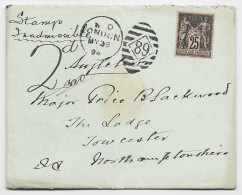 Stamps
Inadmissible
N D
LONDON
MY 28
94
89
25
2d
Angleterre
Major Price Blackwood
The Lodge
Towcester
Northamptonshire